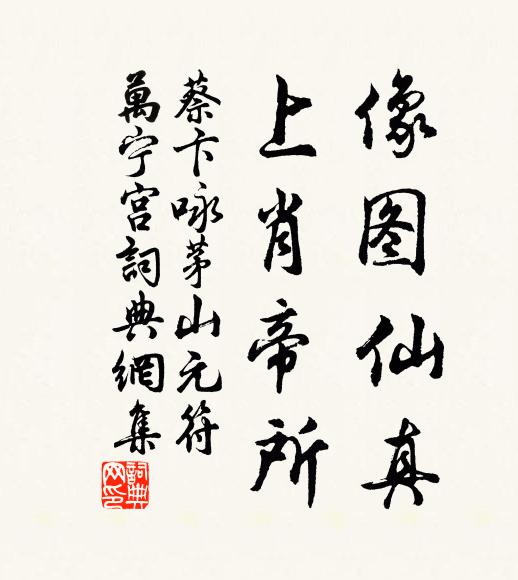 像图仙真
上肖帝所
蔡卞咏茅山元符
萬宁宫詞典網集
詞典网印